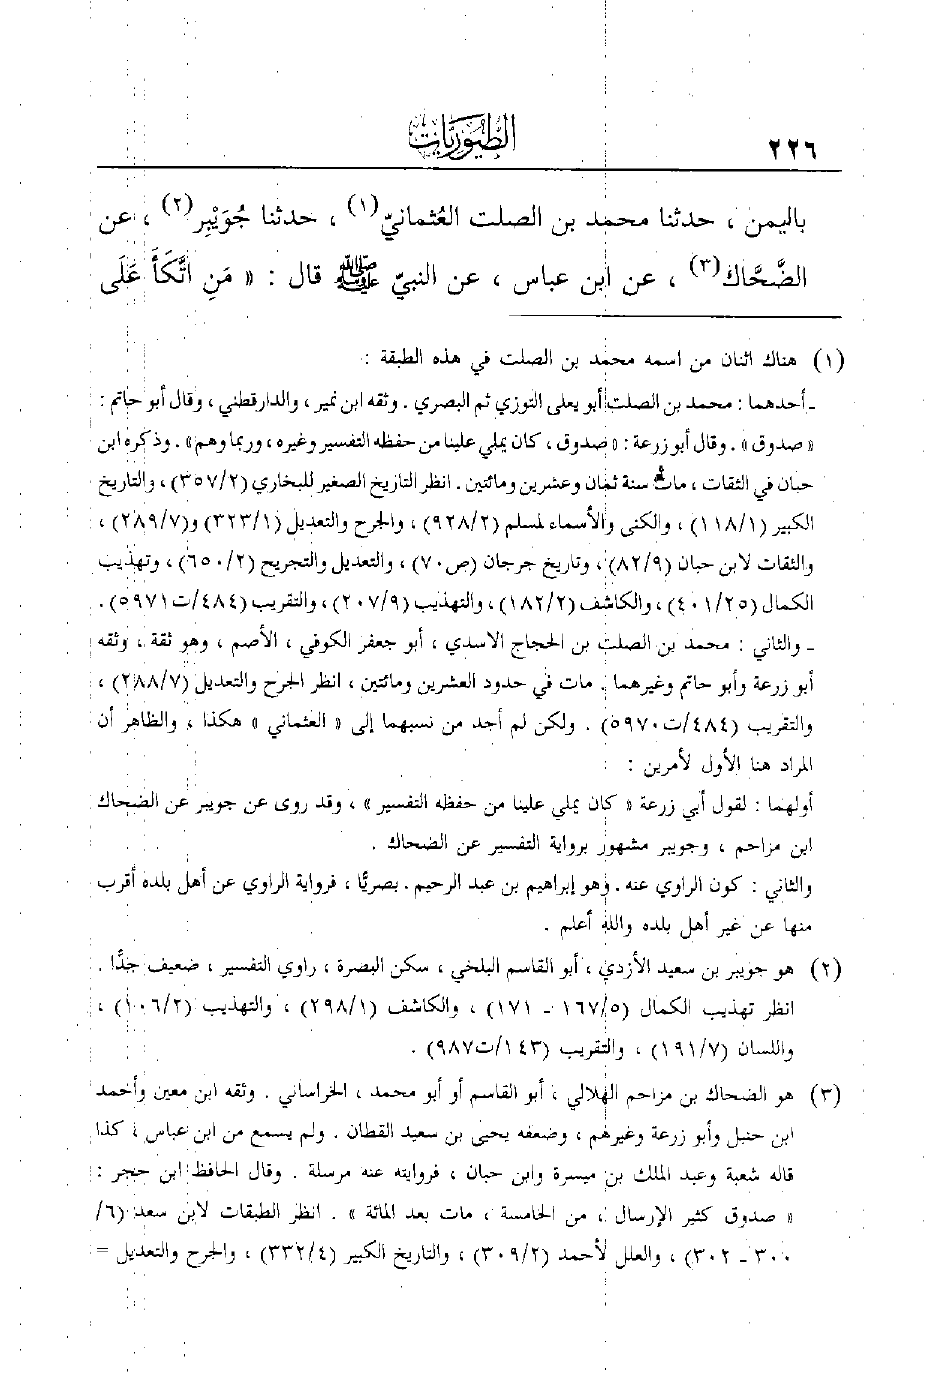 ٢٢٦
الطيوريات
باليمن ، حدثنا محمد بن الصلت العُثمانيّ(١) ، حدثنا جُوَيْبِر(٢) ، عن
الضَّحَّاك(٣) ، عن ابن عباس ، عن النبيّ ﷺ قال : « مَنِ اتَّكَأَ عَلَى
(١) هناك اثنان من اسمه محمد بن الصلت في هذه الطبقة :
ـ أحدهما : محمد بن الصلت أبو يعلى التوزي ثم البصري . وثقه ابن نمير ، والدارقطني ، وقال أبو حاتم :
« صدوق » . وقال أبو زرعة : « صدوق ، كان يملي علينا من حفظه التفسير وغيره ، وربما وهم » . وذكره ابن
حبان في الثقات ، مات سنة ثمان وعشرين ومائتين . انظر التاريخ الصغير للبخاري (٣٥٧/٢) ، والتاريخ
الكبير (١١٨/١) ، والكنى والأسماء لمسلم (٩٢٨/٢) ، والجرح والتعديل (٣٢٣/١) و(٢٨٩/٧) ،
والثقات لابن حبان (٨٢/٩) ، وتاريخ جرجان (ص٧٠) ، والتعديل والتجريح (٦٥٠/٢) ، وتهذيب
الكمال (٤٠١/٢٥) ، والكاشف (١٨٢/٢) ، والتهذيب (٢٠٧/٩) ، والتقريب (٤٨٤/ت٥٩٧١) .
ـ والثاني : محمد بن الصلت بن الحجاج الأسدي ، أبو جعفر الكوفي ، الأصم ، وهو ثقة ، وثقه
أبو زرعة وأبو حاتم وغيرهما . مات في حدود العشرين ومائتين ، انظر الجرح والتعديل (٢٨٨/٧) ،
والتقريب (٤٨٤/ت٥٩٧٠) . ولكن لم أجد من نسبهما إلى « العثماني » هكذا ، والظاهر أن
المراد هنا الأول لأمرين :
أولهما : لقول أبي زرعة « كان يملي علينا من حفظه التفسير » ، وقد روى عن جويبر عن الضحاك
ابن مزاحم ، وجويبر مشهور برواية التفسير عن الضحاك .
والثاني : كون الراوي عنه . وهو إبراهيم بن عبد الرحيم . بصريًّا ، فرواية الراوي عن أهل بلده أقرب
منها عن غير أهل بلده والله أعلم .
(٢) هو جويبر بن سعيد الأزدي ، أبو القاسم البلخي ، سكن البصرة ، راوي التفسير ، ضعيف جدًّا .
انظر تهذيب الكمال (١٦٧/٥ ـ ١٧١) ، والكاشف (٢٩٨/١) ، والتهذيب (١٠٦/٢) ،
واللسان (١٩١/٧) ، والتقريب (١٤٣/ت٩٨٧) .
(٣) هو الضحاك بن مزاحم الهلالي ، أبو القاسم أو أبو محمد ، الخراساني . وثقه ابن معين وأحمد
ابن حنبل وأبو زرعة وغيرهم ، وضعفه يحيى بن سعيد القطان . ولم يسمع من ابن عباس ، كذا
قاله شعبة وعبد الملك بن ميسرة وابن حبان ، فروايته عنه مرسلة . وقال الحافظ ابن حجر :
« صدوق كثير الإرسال ، من الخامسة ، مات بعد المائة » . انظر الطبقات لابن سعد (٦/
٣٠٠ ـ ٣٠٢) ، والعلل لأحمد (٣٠٩/٢) ، والتاريخ الكبير (٣٣٢/٤) ، والجرح والتعديل =